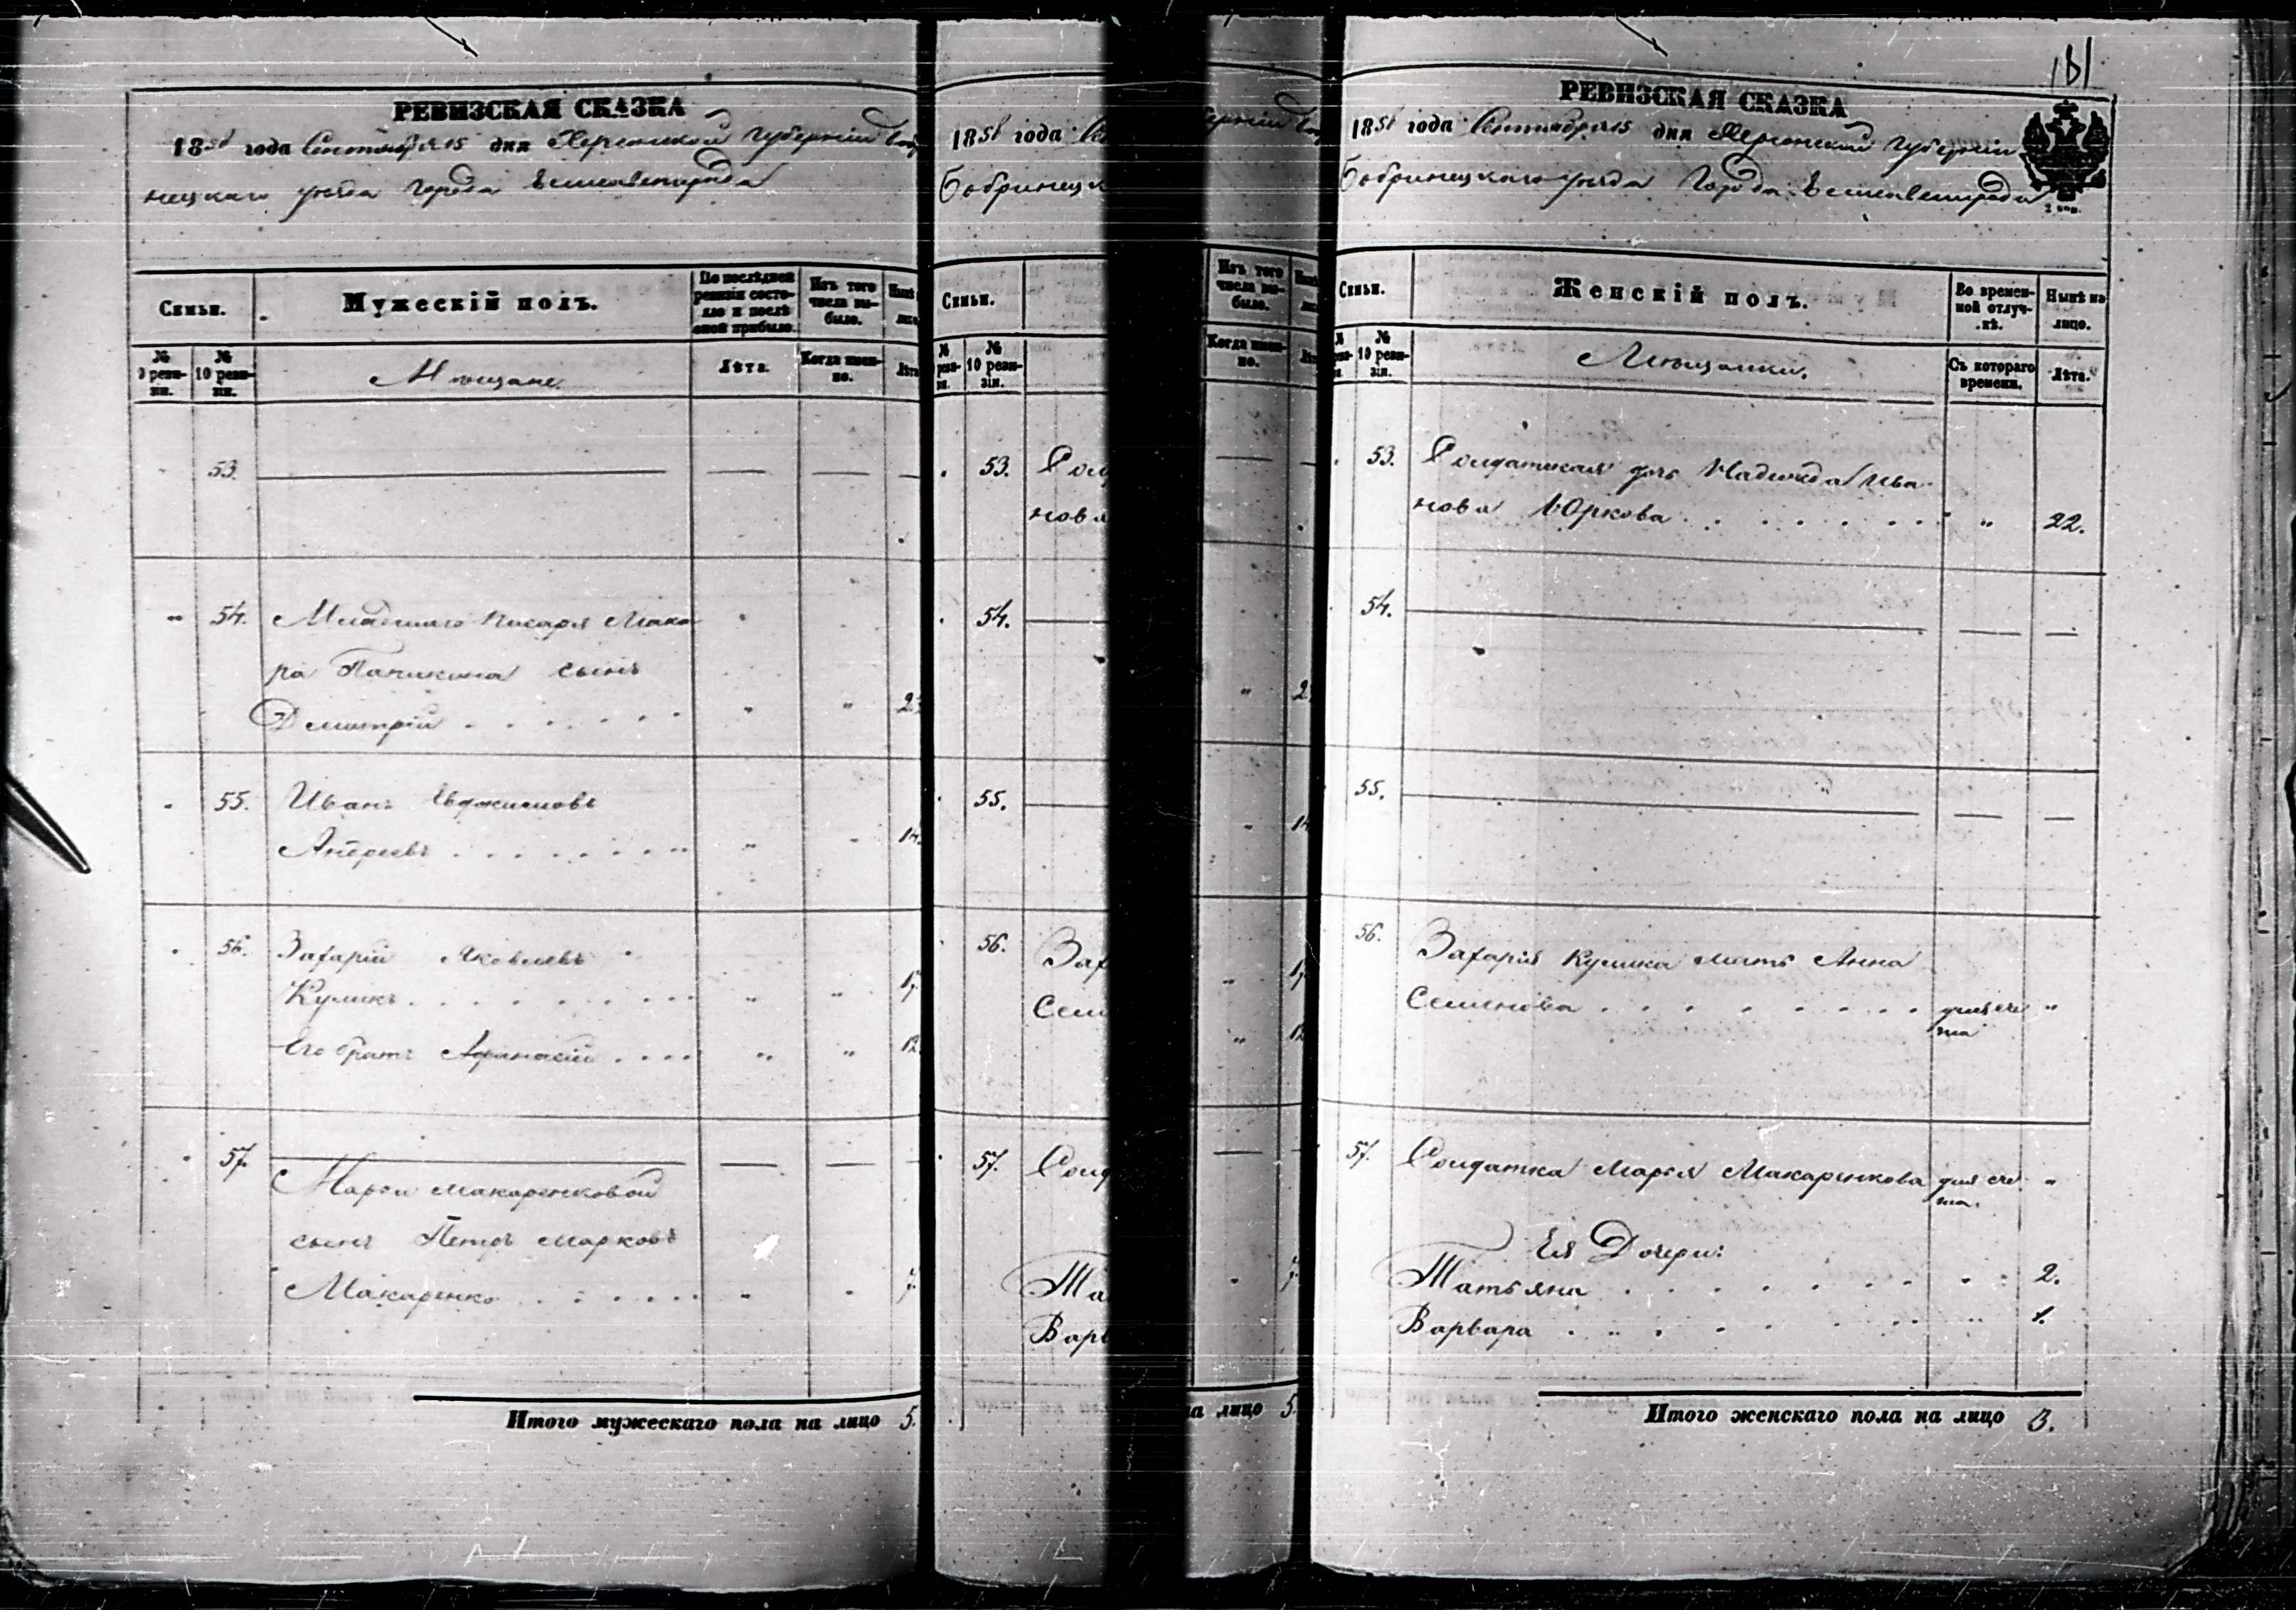 РЕВИЗСКАЯ СКАЗКА
1858 года Сентября 15 дня Херсонской Губерніи Боб
нецкаго уѣзда Города Елисаветграда
Семьи.
Мужескій полъ.
По послѣдней ревизіи состояло и послѣ оной прибыло.
Изъ того числа выбыло.
№ 9 ревизіи.
№ 10 ревизіи.
Мѣщане
Лѣта.
Когда именно.
Лѣта
53.
54. Младшаго писаря Мака
ра Паникина сынъ
Дмитрій . . . . . . " " 23
55. Иванъ
Андреевъ . . . . . . . " " 14.
56. Захарій Яковлевъ
Куликъ . . . . . . . . " " 17
Его братъ Афанасій . . . . " " 12.
57.
Марьи Макаренковой
сынъ Петръ Марковъ
Макаренко . . . . . . " " 7.
Итого мужескаго пола на лицо 5.
1858 года
Бобринецк
Семьи.
№ 10 ревизіи.
53. Солд
нова
54.
55.
56. Зах
Семе
57. Солд
Та
Варв
Изъ того числа выбыло.
Когда именно.
на лицо 5.
181
РЕВИЗСКАЯ СКАЗКА
1858 года Сентября 15 дня Херсонской Губерніи
Бобринецкаго уѣзда Города Елисаветграда
2 коп.
Семьи.
Женскій полъ.
Во временной отлучкѣ.
Нынѣ на лицо.
№ 10 ревизіи.
Мѣщанки.
Съ котораго времени.
Лѣта.
53. Солдатская дочь Надежда Ива
нова Юркова . . . . . . . " 22.
54.
55.
56. Захарія Кулика мать Анна
Семенова . . . . . . . . для сче "
та
57. Солдатка Марья Макаренкова для сче "
та.
Ея Дочери:
Татьяна . . . . . . . " 2.
Варвара . . . . . . . " 1.
Итого женскаго пола на лицо 3.